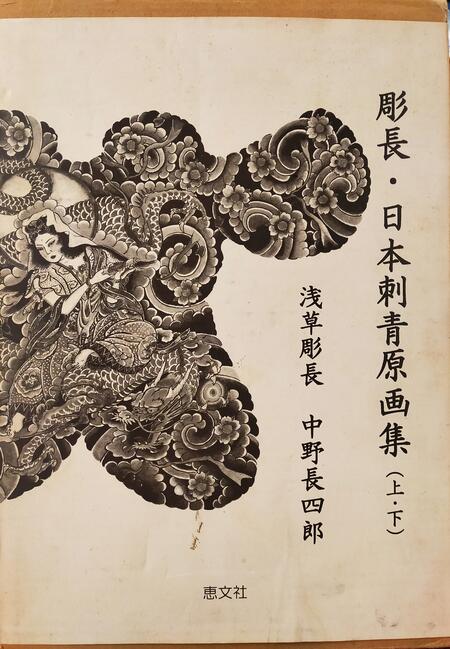 彫長・日本刺青原画集(上・下)
浅草彫長　中野長四郎
恵文社